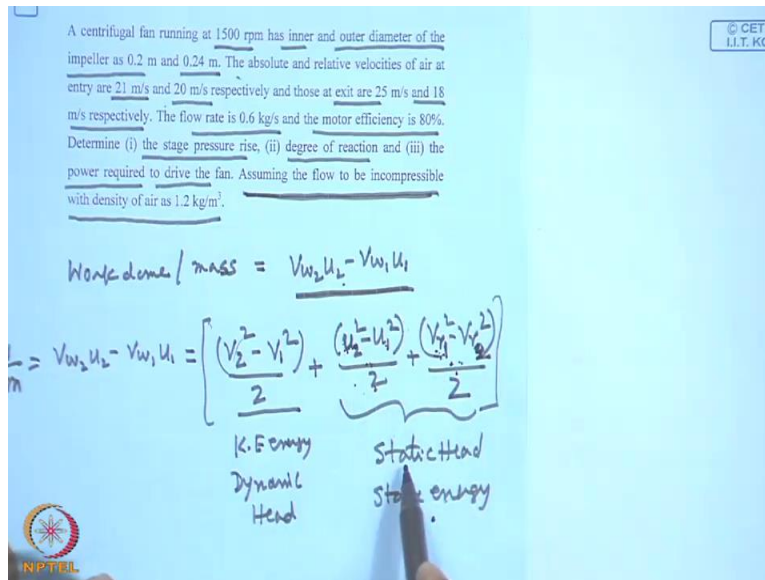 © CET
I.I.T. KG
A centrifugal fan running at 1500 rpm has inner and outer diameter of the
impeller as 0.2 m and 0.24 m. The absolute and relative velocities of air at
entry are 21 m/s and 20 m/s respectively and those at exit are 25 m/s and 18
m/s respectively. The flow rate is 0.6 kg/s and the motor efficiency is 80%.
Determine (i) the stage pressure rise, (ii) degree of reaction and (iii) the
power required to drive the fan. Assuming the flow to be incompressible
with density of air as 1.2 kg/m³.
Work done / mass = Vw₂u₂ - Vw₁u₁
= Vw₂u₂ - Vw₁u₁ = [(V₂² - V₁²)/2 + (u₂² - u₁²)/2 + (Vr₁² - Vr₂²)/2]
K.E energy Static Head
Dynamic energy
Head
NPTEL